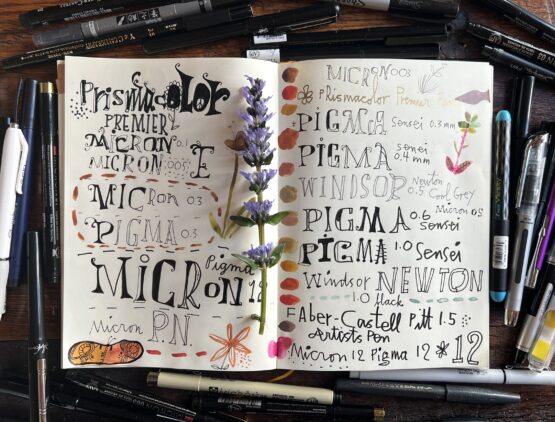 Prismacolor
PREMIER
MICRON 0.1
MICRON .005 E
MICron 03
PIGMA 0.3
Pigma
MICRON 12
Micron P.N.
MICRON 003
Prismacolor Premier
PIGMA Sensei 0.3 mm
PIGMA Sensei 0.4 mm
WINDSOR Newton 0.5 Cool Grey
Micron 05
PIGMA 0.6 Sensei
PIGMA 1.0 Sensei
Windsor NEWTON
1.0 black
FABER-Castell Pitt 1.5
Artists Pen
Micron 12 Pigma 12 * 12